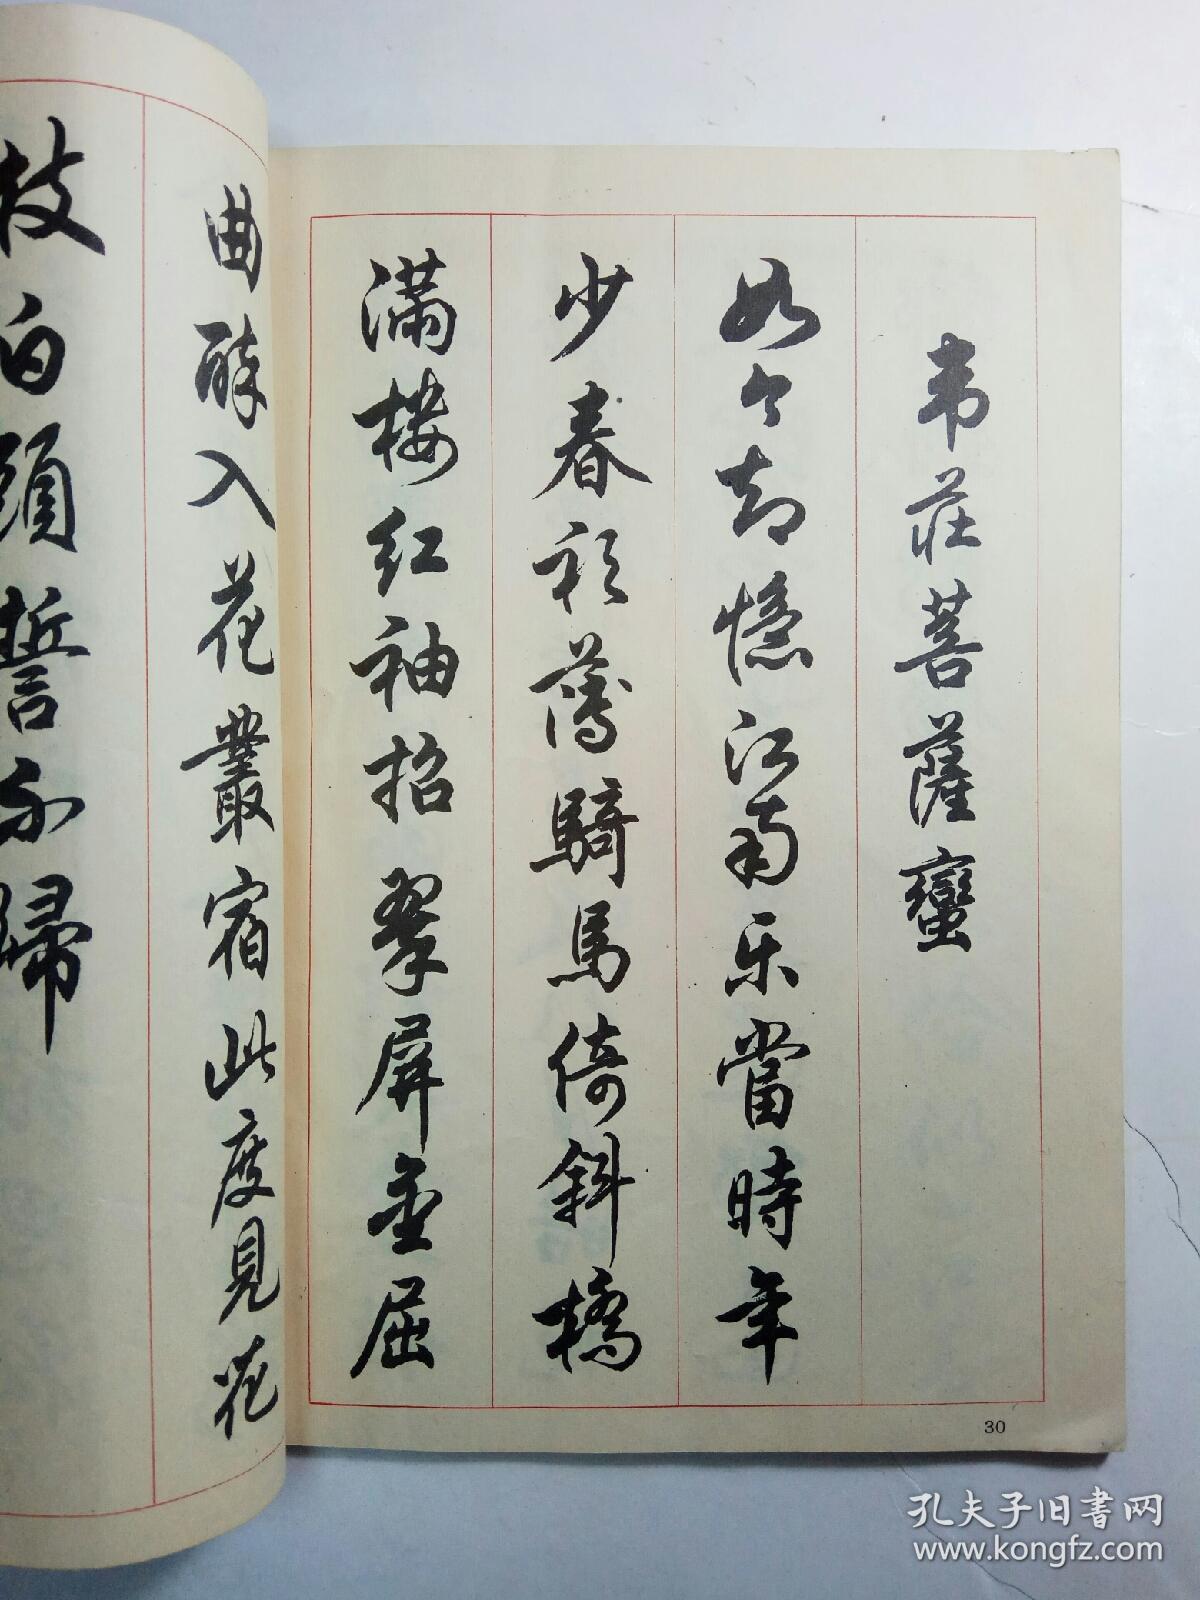 韦莊菩薩蠻
如今却憶江南乐當時年
少春衫薄騎馬倚斜橋
滿楼红袖招翠屏金屈
曲醉入花叢宿此度見花
枝白頭誓不歸
30
孔夫子旧书网
www.kongfz.com